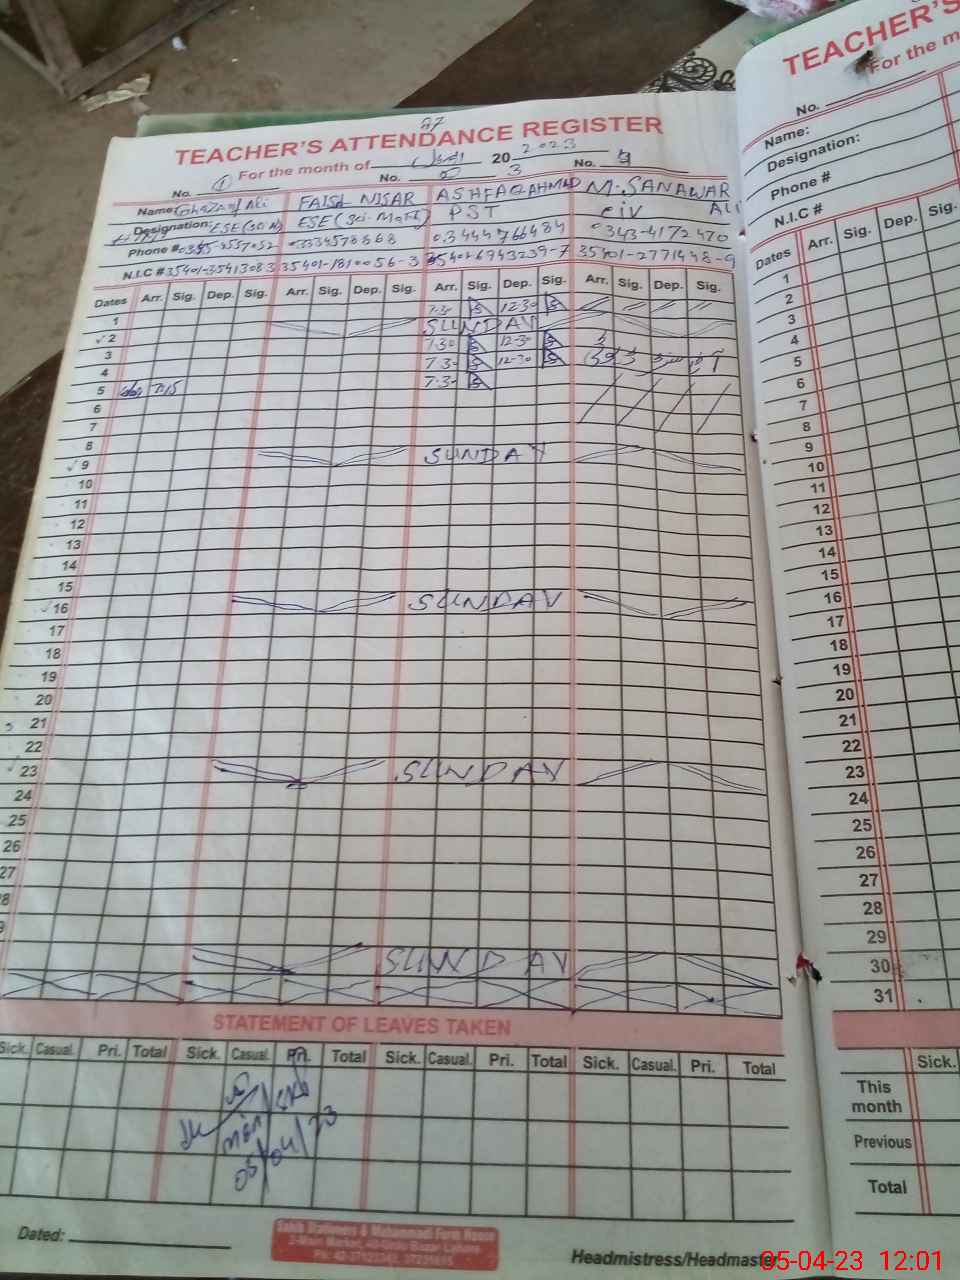 27
TEACHER'S ATTENDANCE REGISTER
For the month of اپریل 20 2023
No. ① No. 2 3 No. 4
Name: Ghazanf Ali FAISL NISAR ASHFAQ AHMAD M. SANAWAR ALI
Designation: ESE ESE (Sci-Math) PST civ
Phone # 03334578868 03444766484 0343-4172470
N.I.C # 35401-3541308 3 35401-1810056-3 35401-6943239-7 35401-2771448-9
Dates Arr. Sig. Dep. Sig. Arr. Sig. Dep. Sig. Arr. Sig. Dep. Sig. Arr. Sig. Dep. Sig.
1 7:30 12-30
2 SUNDAY
3 7:30 12-30
4 7:30 12-30
5 7:15 7:30
6
7
8
9 SUNDAY
10
11
12
13
14
15
16 SUNDAY
17
18
19
20
21
22
23 SUNDAY
24
25
26
27
28
9
SUNDAY
STATEMENT OF LEAVES TAKEN
Sick. Casual. Pri. Total Sick. Casual. Pri. Total Sick. Casual. Pri. Total Sick. Casual. Pri. Total
05/04/23
Dated:
Headmistress/Headmaster
TEACHER'S
For the m
No.
Name:
Designation:
Phone #
N.I.C #
Dates Arr. Sig. Dep. Sig.
1
2
3
4
5
6
7
8
9
10
11
12
13
14
15
16
17
18
19
20
21
22
23
24
25
26
27
28
29
30
31
Sick.
This month
Previous
Total
05-04-23 12:01